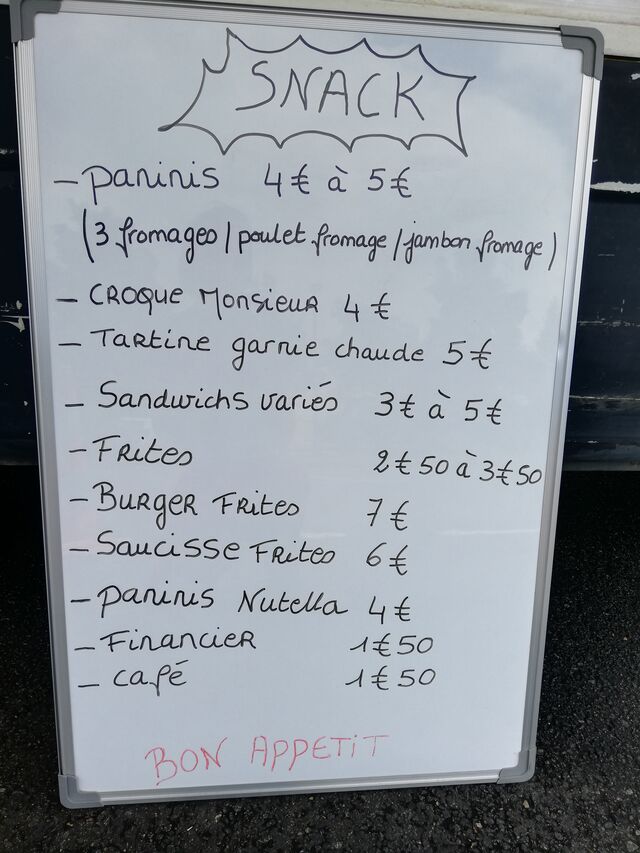 SNACK
- Paninis 4€ à 5€
(3 fromages / poulet fromage / jambon fromage)
- Croque Monsieur 4€
- Tartine garnie chaude 5€
- Sandwichs variés 3€ à 5€
- Frites 2€50 à 3€50
- Burger Frites 7€
- Saucisse Frites 6€
- Paninis Nutella 4€
- Financier 1€50
- Café 1€50
BON APPETIT